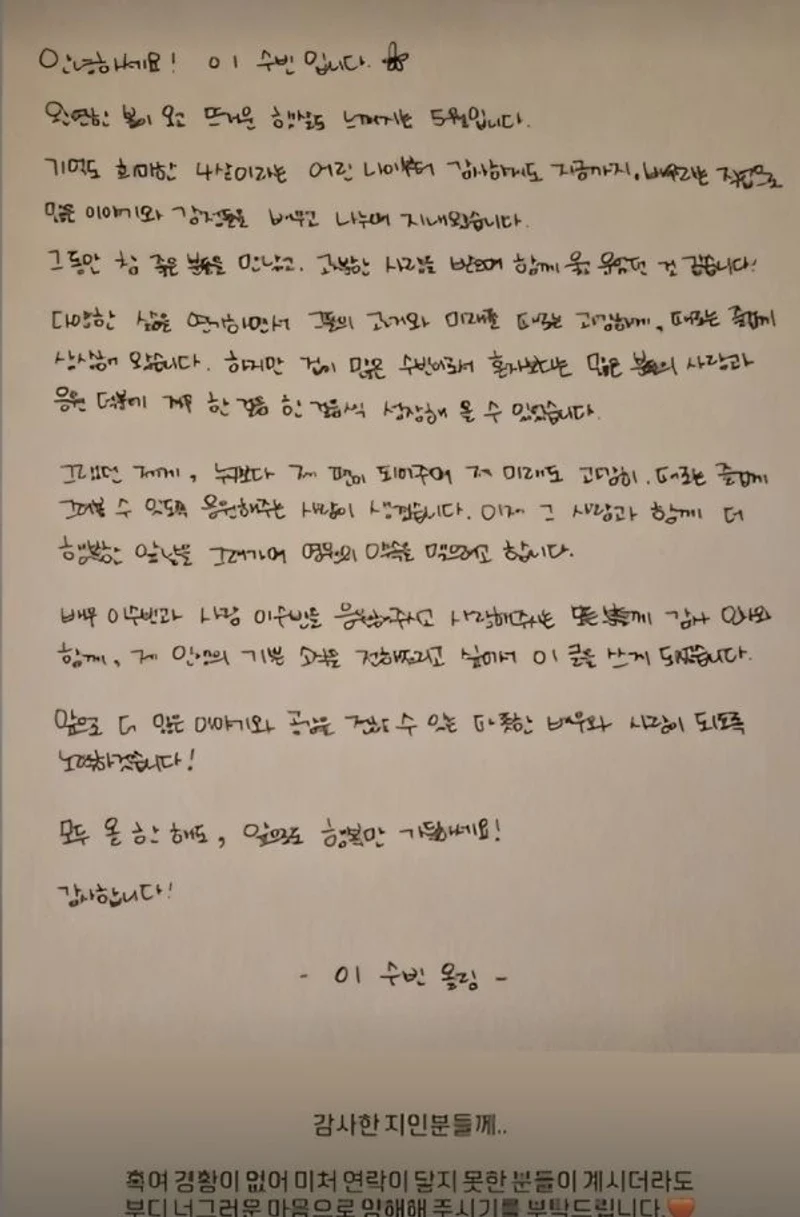 안녕하세요! 이 수빈 입니다.
완연한 봄이 오고 뜨거운 햇살도 느껴지는 5월입니다.
기억도 희미한 4살이라는 어린 나이부터 감사하게도 지금까지, 배우라는 직업으로
많은 이야기와 감정들을 배우고 나누며 지내왔습니다.
그동안 참 좋은 분들을 만났고, 과분한 사랑을 받으며 함께 울고 웃었던 것 같습니다!
다양한 삶을 연기하면서 그들의 과거와 미래를 때로는 고민하며, 때로는 즐겁게
상상해 왔습니다. 하지만 겁이 많은 수빈이라서 혼자보다는 많은 분들의 사랑과
응원 덕분에 겨우 한 걸음 한 걸음씩 성장해 올 수 있었습니다.
그랬던 저에게, 누구보다 제 편이 되어주며 제 미래도 고민히, 때로는 즐겁게
그려볼 수 있도록 응원해주는 사람이 생겼습니다. 이제 그 사람과 함께 더
행복한 앞날을 그려가며 영원의 약속을 맺으려고 합니다.
배우 이수빈과 사람 이수빈을 응원해주시고 사랑해주시는 모든 분들께 감사 인사와
함께, 제 인생의 기쁜 소식을 전해드리고 싶어서 이 글을 쓰게 되었습니다.
앞으로 더 많은 이야기와 공감을 전할 수 있는 따뜻한 배우와 사람이 되도록
노력하겠습니다!
모두 올 한 해도, 앞으로도 행복만 가득하세요!
감사합니다!
- 이 수빈 올림 -
감사한 지인분들께..
혹여 경황이 없어 미처 연락이 닿지 못한 분들이 계시더라도
부디 너그러운 마음으로 양해해 주시기를 부탁드립니다.